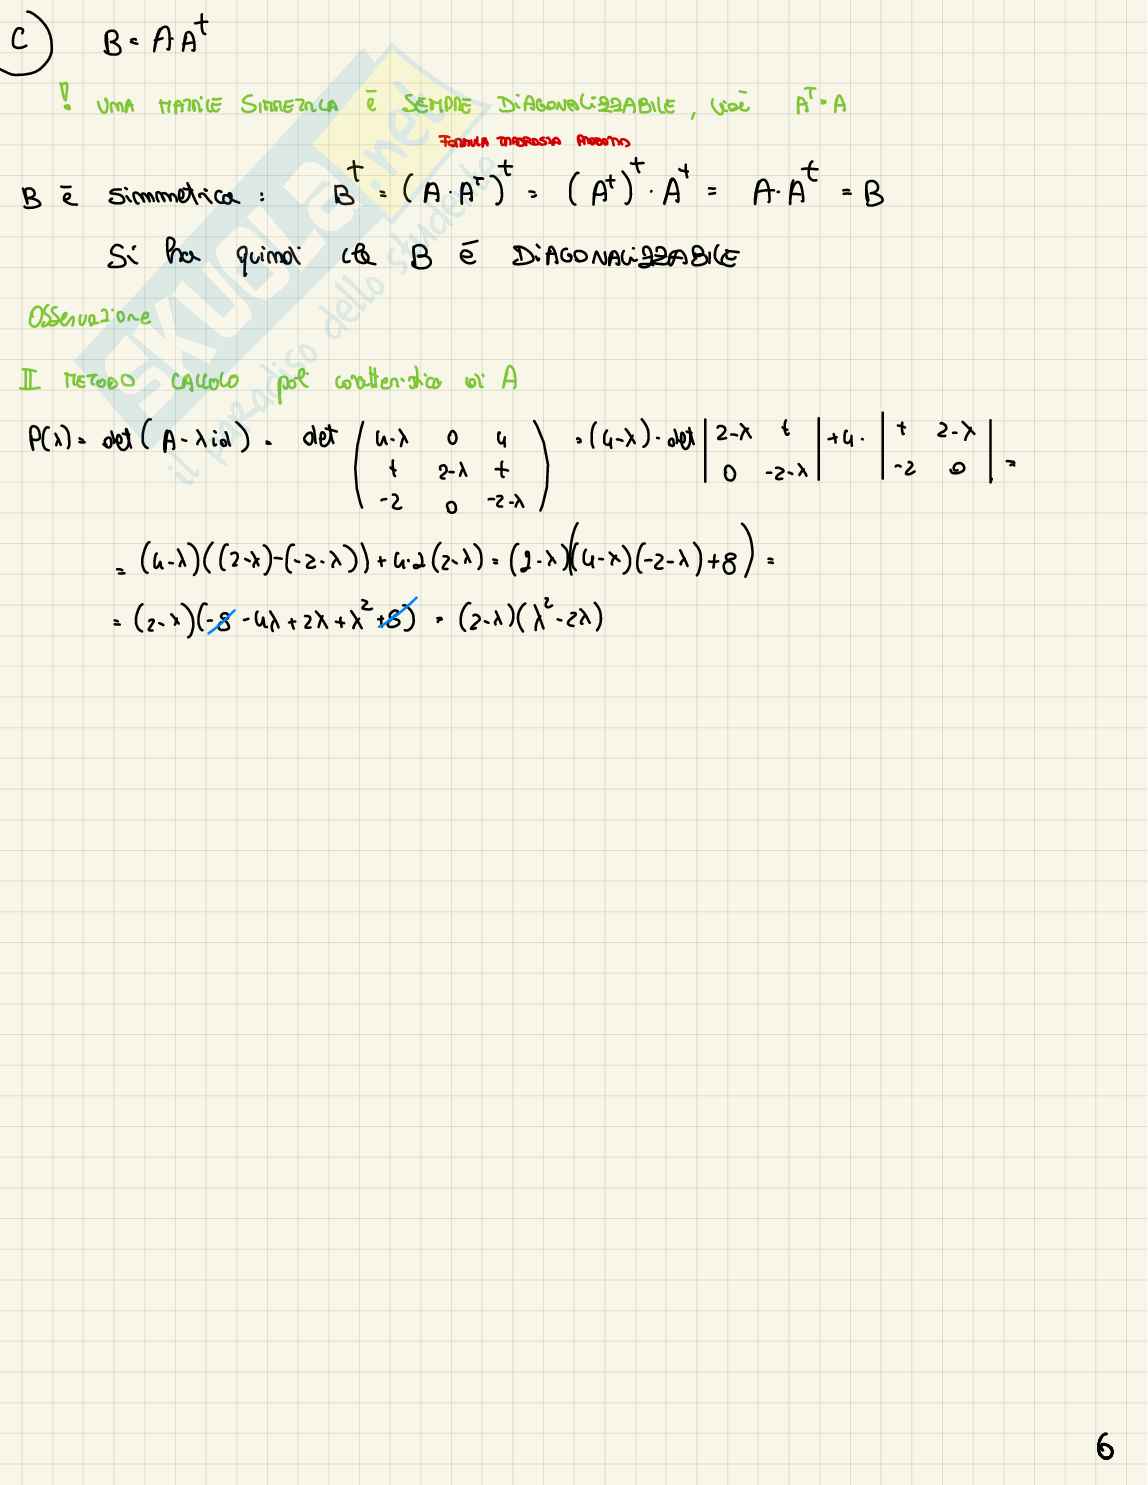 C B = A A^t
! UNA MATRICE SIMMETRICA è SEMPRE DIAGONALIZZABILE, cioè A^T = A
FORMULA TRASPOSTA PRODOTTO
B è simmetrica : B^t = (A · A^t)^t = (A^t)^t · A^t = A · A^t = B
Si ha quindi che B è DIAGONALIZZABILE
Osservazione
II METODO CALCOLO pol caratteristico di A
P(λ) = det(A - λid) = det ( 4-λ 0 4 ; t 2-λ t ; -2 0 -2-λ ) = (4-λ) · det | 2-λ t ; 0 -2-λ | + 4 · | t 2-λ ; -2 0 | =
= (4-λ)((2-λ)-(-2-λ)) + 4·2(2-λ) = (2-λ)((4-λ)(-2-λ)+8) =
= (2-λ)(-8 - 4λ + 2λ + λ^2 + 8) = (2-λ)(λ^2 - 2λ)
SKUOLA.net
il paradiso dello studente
6